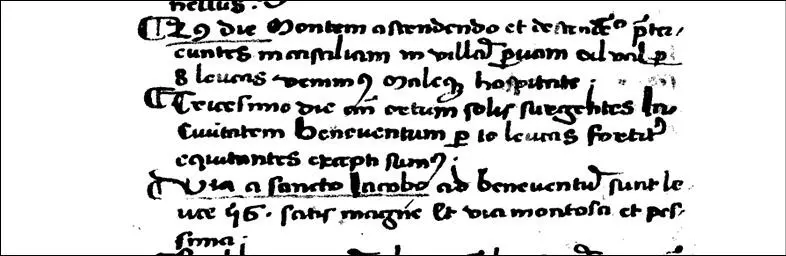 nellus.
¶ 29 die Montem ascendendo et descendēdo p̄ter/
euntes mansiliam in villā ꝑuam
8 leucas venimꝰ Maleqꝫ hospitati.
¶ Tricesimo die an̄ ortum solis surgentes In
Ciuitatem Beneuentum ꝑ 10 leucas fortit̄
equitantes exepti sumꝰ.
¶ Via a sancto Iacobo ad beneuentū sunt le
uce 46. satis magne Et via montosa et pes-
sima.